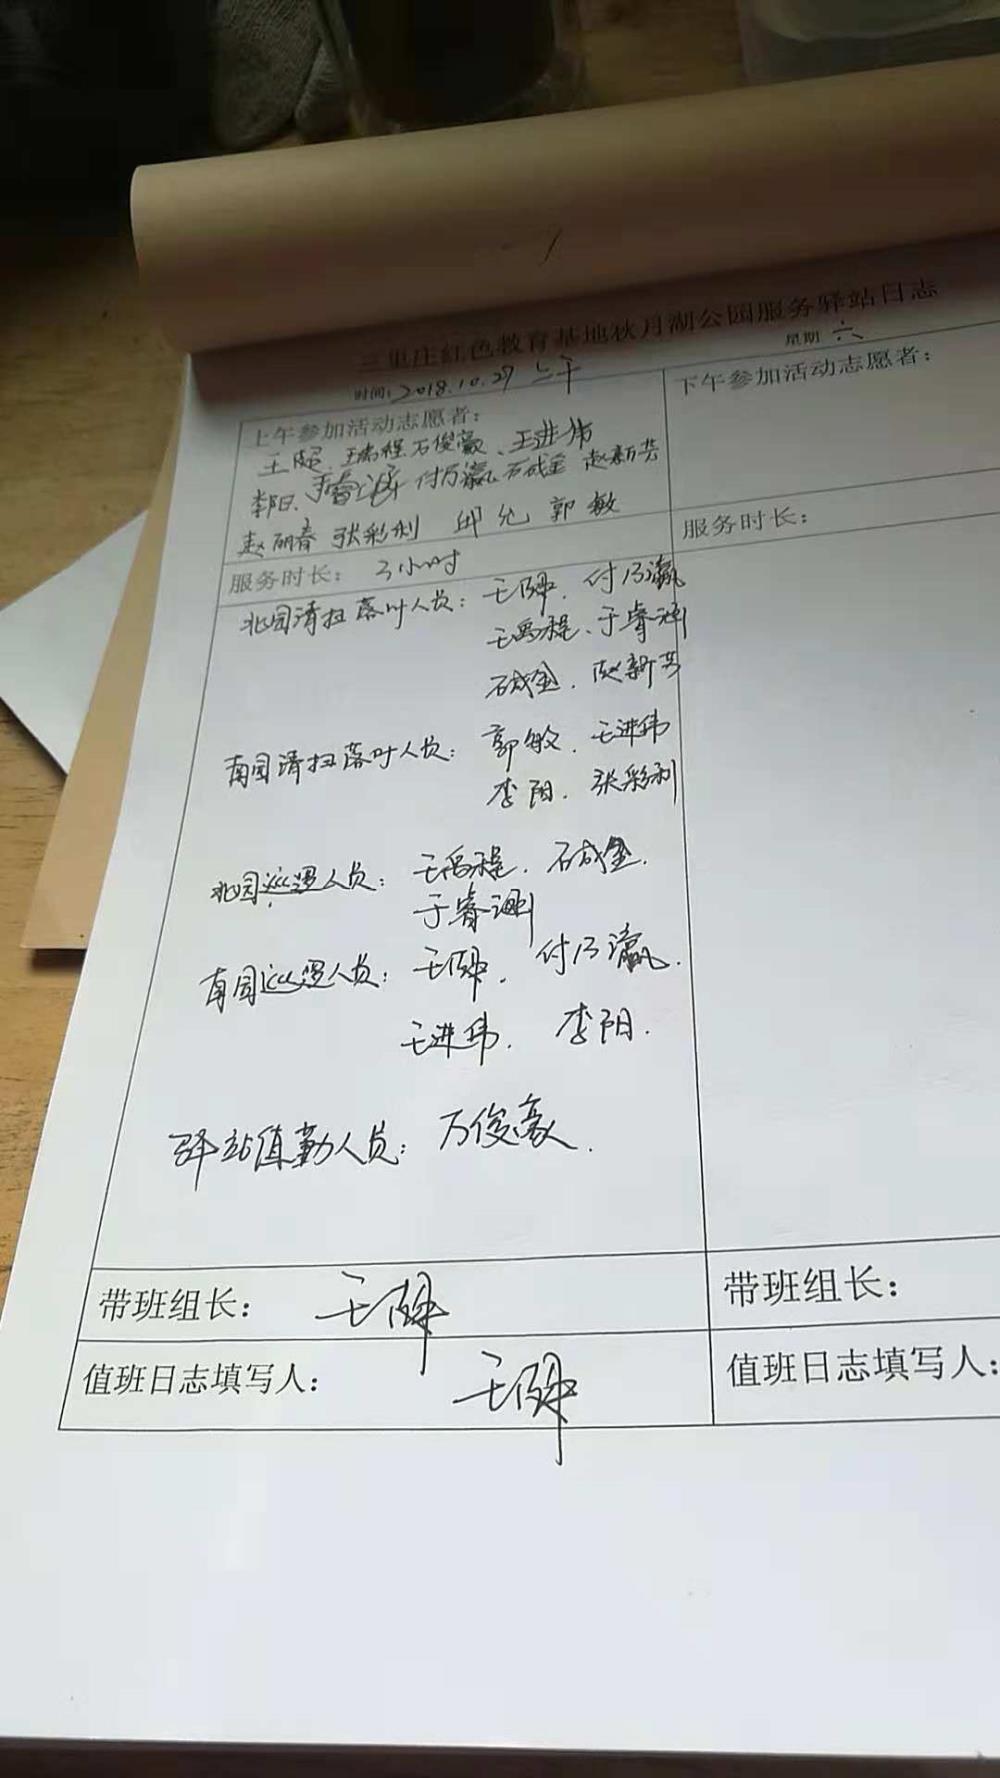 三里庄红色教育基地秋月湖公园服务驿站日志
时间：2018.10.27 上午
星期 六
上午参加活动志愿者：
下午参加活动志愿者：
石俊豪、王进伟
李阳、付乃瀛 石成金 赵新芸
赵丽春 张彩利 邱允 郭敏
服务时长： 3小时
服务时长：
北园清扫落叶人员： 付乃瀛
王禹程、于睿渊
石成金. 赵新芸
南园清扫落叶人员： 郭敏. 王进伟
李阳. 张彩利
北园巡逻人员： 王禹程. 石成金.
于睿渊
南园巡逻人员： 付乃瀛.
王进伟. 李阳.
驿站值勤人员： 万俊豪.
带班组长：
带班组长：
值班日志填写人：
值班日志填写人：